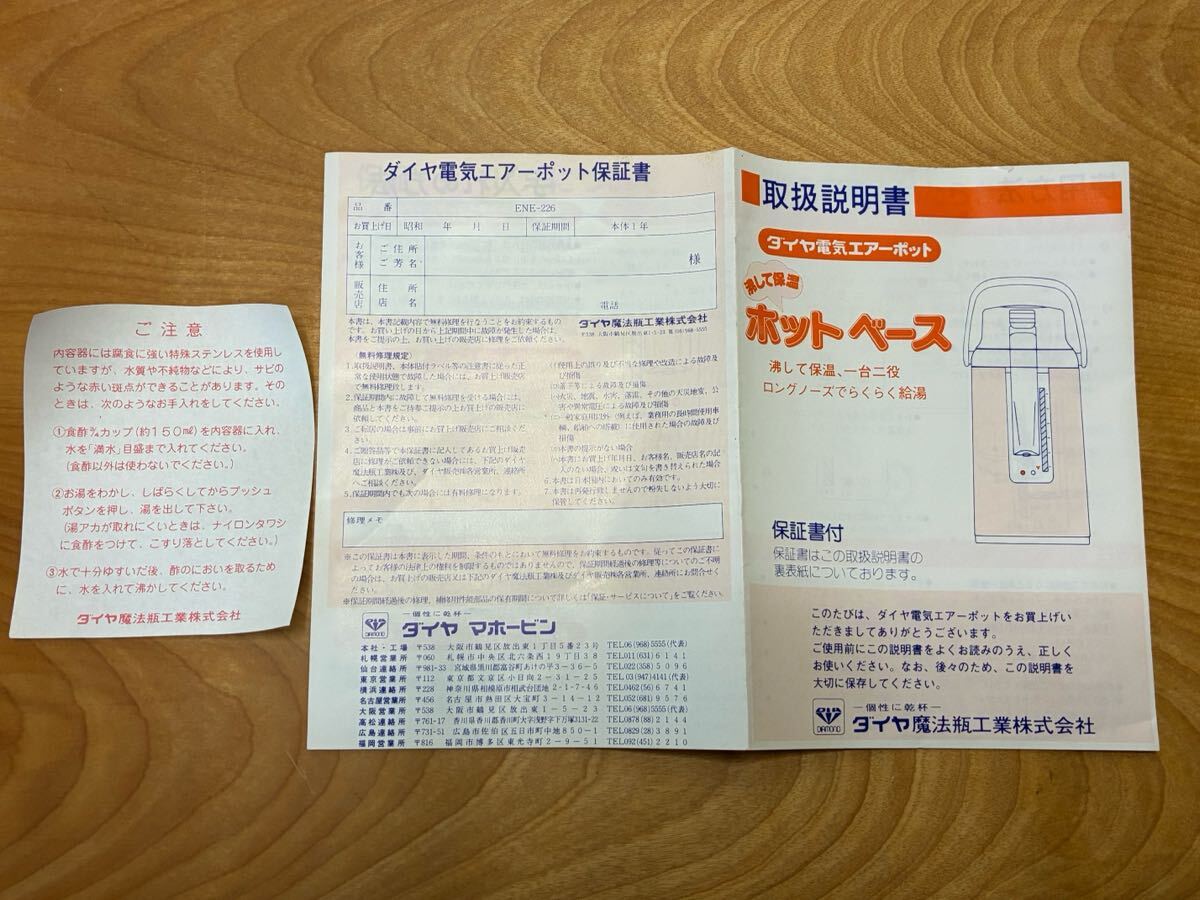 ご注意
内容器には腐食に強い特殊ステンレスを使用し
ていますが、水質や不純物などにより、サビの
ような赤い斑点ができることがあります。その
ときは、次のようなお手入れをしてください。
①食酢¾カップ(約150㎖)を内容器に入れ、
水を「満水」目盛まで入れてください。
(食酢以外は使わないでください。)
②お湯をわかし、しばらくしてからプッシュ
ボタンを押し、湯を出して下さい。
(湯アカが取れにくいときは、ナイロンタワシ
に食酢をつけて、こすり落としてください。)
③水で十分ゆすいだ後、酢のにおいを取るため
に、水を入れて沸かしてください。
ダイヤ魔法瓶工業株式会社
ダイヤ電気エアーポット保証書
品番 ENE-226
お買上げ日 昭和 年 月 日 保証期間 本体1年
お客様 ご住所
ご芳名 様
販売店 住所
店名 電話
本書は、本書記載内容で無料修理を行なうことをお約束するもの
です。お買い上げの日から上記期間中に故障が発生した場合は、
本書をご提示の上、お買い上げの販売店に修理をご依頼ください。
ダイヤ魔法瓶工業株式会社
〒538 大阪市鶴見区放出東1丁目5-23 TEL(06)968-5555
〈無料修理規定〉
1.取扱説明書、本体貼付ラベル等の注意書に従った正
常な使用状態で故障した場合には、お買上げ販売店
で無料修理致します。
2.保証期間内に故障して無料修理を受ける場合には、
商品と本書をご持参ご提示の上お買上げの販売店に
依頼してください。
3.ご転居の場合は事前にお買上げ販売店にご相談くだ
さい。
4.ご贈答品等で本保証書に記入してあるお買上げ販売
店に修理がご依頼できない場合には、下記のダイヤ
魔法瓶工業㈱及び、ダイヤ販売㈱各営業所、連絡所
へご相談ください。
5.保証期間内でも次の場合には有料修理になります。
(イ)使用上の誤り及び不当な修理や改造による故障及
び損傷
(ロ)落下等による故障及び損傷
(ハ)火災、地震、水害、落雷、その他の天災地変、公
害や異常電圧による故障及び損傷
(ニ)一般家庭用以外(例えば、業務用の長時間使用車
輛、船舶への搭載)に使用された場合の故障及び
損傷
(ホ)本書の提示がない場合
(ヘ)本書にお買上げ年月日、お客様名、販売店名の記
入のない場合、或いは文句を書き替えられた場合
6.本書は日本国内においてのみ有効です。
7.本書は再発行致しませんので紛失しないよう大切に
保管してください。
修理メモ
※この保証書は本書に表示した期間、条件のもとにおいて無料修理をお約束するものです。従ってこの保証書に
よってお客様の法律上の権利を制限するものではありませんので、保証期間経過後の修理等についてのご不明
の場合は、お買上げの販売店又は下記のダイヤ魔法瓶工業㈱及びダイヤ販売㈱各営業所、連絡所にお問合せく
ださい。
※保証期間経過後の修理、補修用性能部品の保有期間について詳しくは「保証・サービスについて」をご覧ください。
DIAMOND
―個性に乾杯―
ダイヤ マホービン
本社・工場 〒538 大阪市鶴見区放出東1丁目5番23号 TEL06(968)5555(代表)
札幌営業所 〒060 札幌市中央区北六条西19丁目38 TEL011(631)6141
仙台連絡所 〒981-33 宮城県黒川郡富谷町あけの平3-36-5 TEL022(358)5096
東京営業所 〒112 東京都文京区小日向2-31-25 TEL03(947)4141(代表)
横浜連絡所 〒228 神奈川県相模原市相武台団地2-1-7-46 TEL0462(56)6741
名古屋営業所 〒456 名古屋市熱田区大宝町3-14-12 TEL052(681)9576
大阪営業所 〒538 大阪市鶴見区放出東1-5-23 TEL06(968)5555(代表)
高松連絡所 〒761-17 香川県香川郡香川町大字浅野字下万塚3131-22 TEL0878(88)2144
広島連絡所 〒731-51 広島市佐伯区五日市町中地850-1 TEL0829(28)3891
福岡営業所 〒816 福岡市博多区東光寺町2-9-51 TEL092(451)2210
取扱説明書
ダイヤ電気エアーポット
沸して保温
ホットベース
沸して保温、一台二役
ロングノーズでらくらく給湯
保証書付
保証書はこの取扱説明書の
裏表紙についております。
このたびは、ダイヤ電気エアーポットをお買上げい
ただきましてありがとうございます。
ご使用前にこの説明書をよくお読みのうえ、正しく
お使いください。なお、後々のため、この説明書を
大切に保存してください。
DIAMOND
―個性に乾杯―
ダイヤ魔法瓶工業株式会社